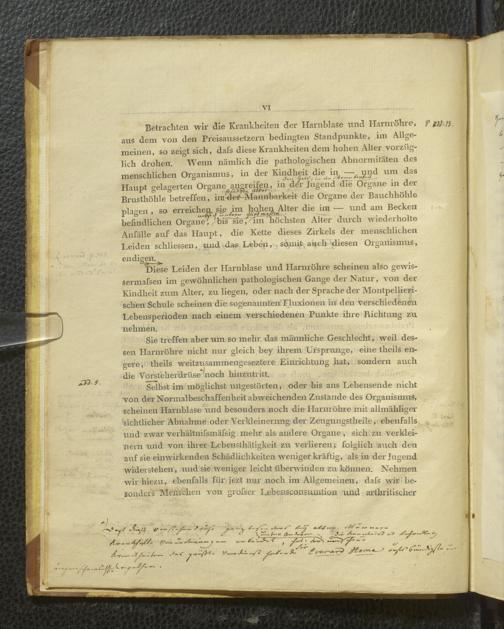 VI
Betrachten wir die Krankheiten der Harnblase und Harnröhre,
aus dem von den Preisaussetzern bedingten Standpunkte, im Allge-
meinen, so zeigt sich, dafs diese Krankheiten dem hohen Alter vorzüg-
lich drohen. Wenn nämlich die pathologischen Abnormitäten des
menschlichen Organismus, in der Kindheit die in — und um das
Haupt gelagerten Organe angreifen, in der Jugend die Organe in der
Brusthöhle betreffen, in der Mannbarkeit die Organe der Bauchhöhle
plagen, so erreichen sie im hohen Alter die im — und am Becken
befindlichen Organe, bis sie, im höchsten Alter durch wiederholte
Anfälle auf das Haupt, die Kette dieses Zirkels der menschlichen
Leiden schliessen, und das Leben, somit auch diesen Organismus,
endigen.
Diese Leiden der Harnblase und Harnröhre scheinen also gewis-
sermafsen im gewöhnlichen pathologischen Gange der Natur, von der
Kindheit zum Alter, zu liegen, oder nach der Sprache der Montpellieri-
schen Schule scheinen die sogenannten Fluxionen in den verschiedenen
Lebensperioden nach einem verschiedenen Punkte ihre Richtung zu
nehmen.
Sie treffen aber um so mehr das männliche Geschlecht, weil des-
sen Harnröhre nicht nur gleich bey ihrem Ursprunge, eine theils en-
gere, theils weitzusammengesetztere Einrichtung hat, sondern auch
die Vorsteherdrüse noch hinzutritt.
Selbst im möglichst ungestörten, oder bis ans Lebensende nicht
von der Normalbeschaffenheit abweichenden Zustande des Organismus,
scheinen Harnblase und besonders noch die Harnröhre mit allmähliger
sichtlicher Abnahme oder Verkleinerung der Zeugungstheile, ebenfalls
und zwar verhältnifsmäfsig mehr als andere Organe, sich zu verklei-
nern und von ihrer Lebensthätigkeit zu verlieren; folglich auch den
auf sie einwirkenden Schädlichkeiten weniger kräftig, als in der Jugend
widerstehen, und sie weniger leicht überwinden zu können. Nehmen
wir hiezu, ebenfalls für jezt nur noch im Allgemeinen, dafs wir be-
sonders Menschen von grofser Lebensconsumtion und arthritischer
Everard Home